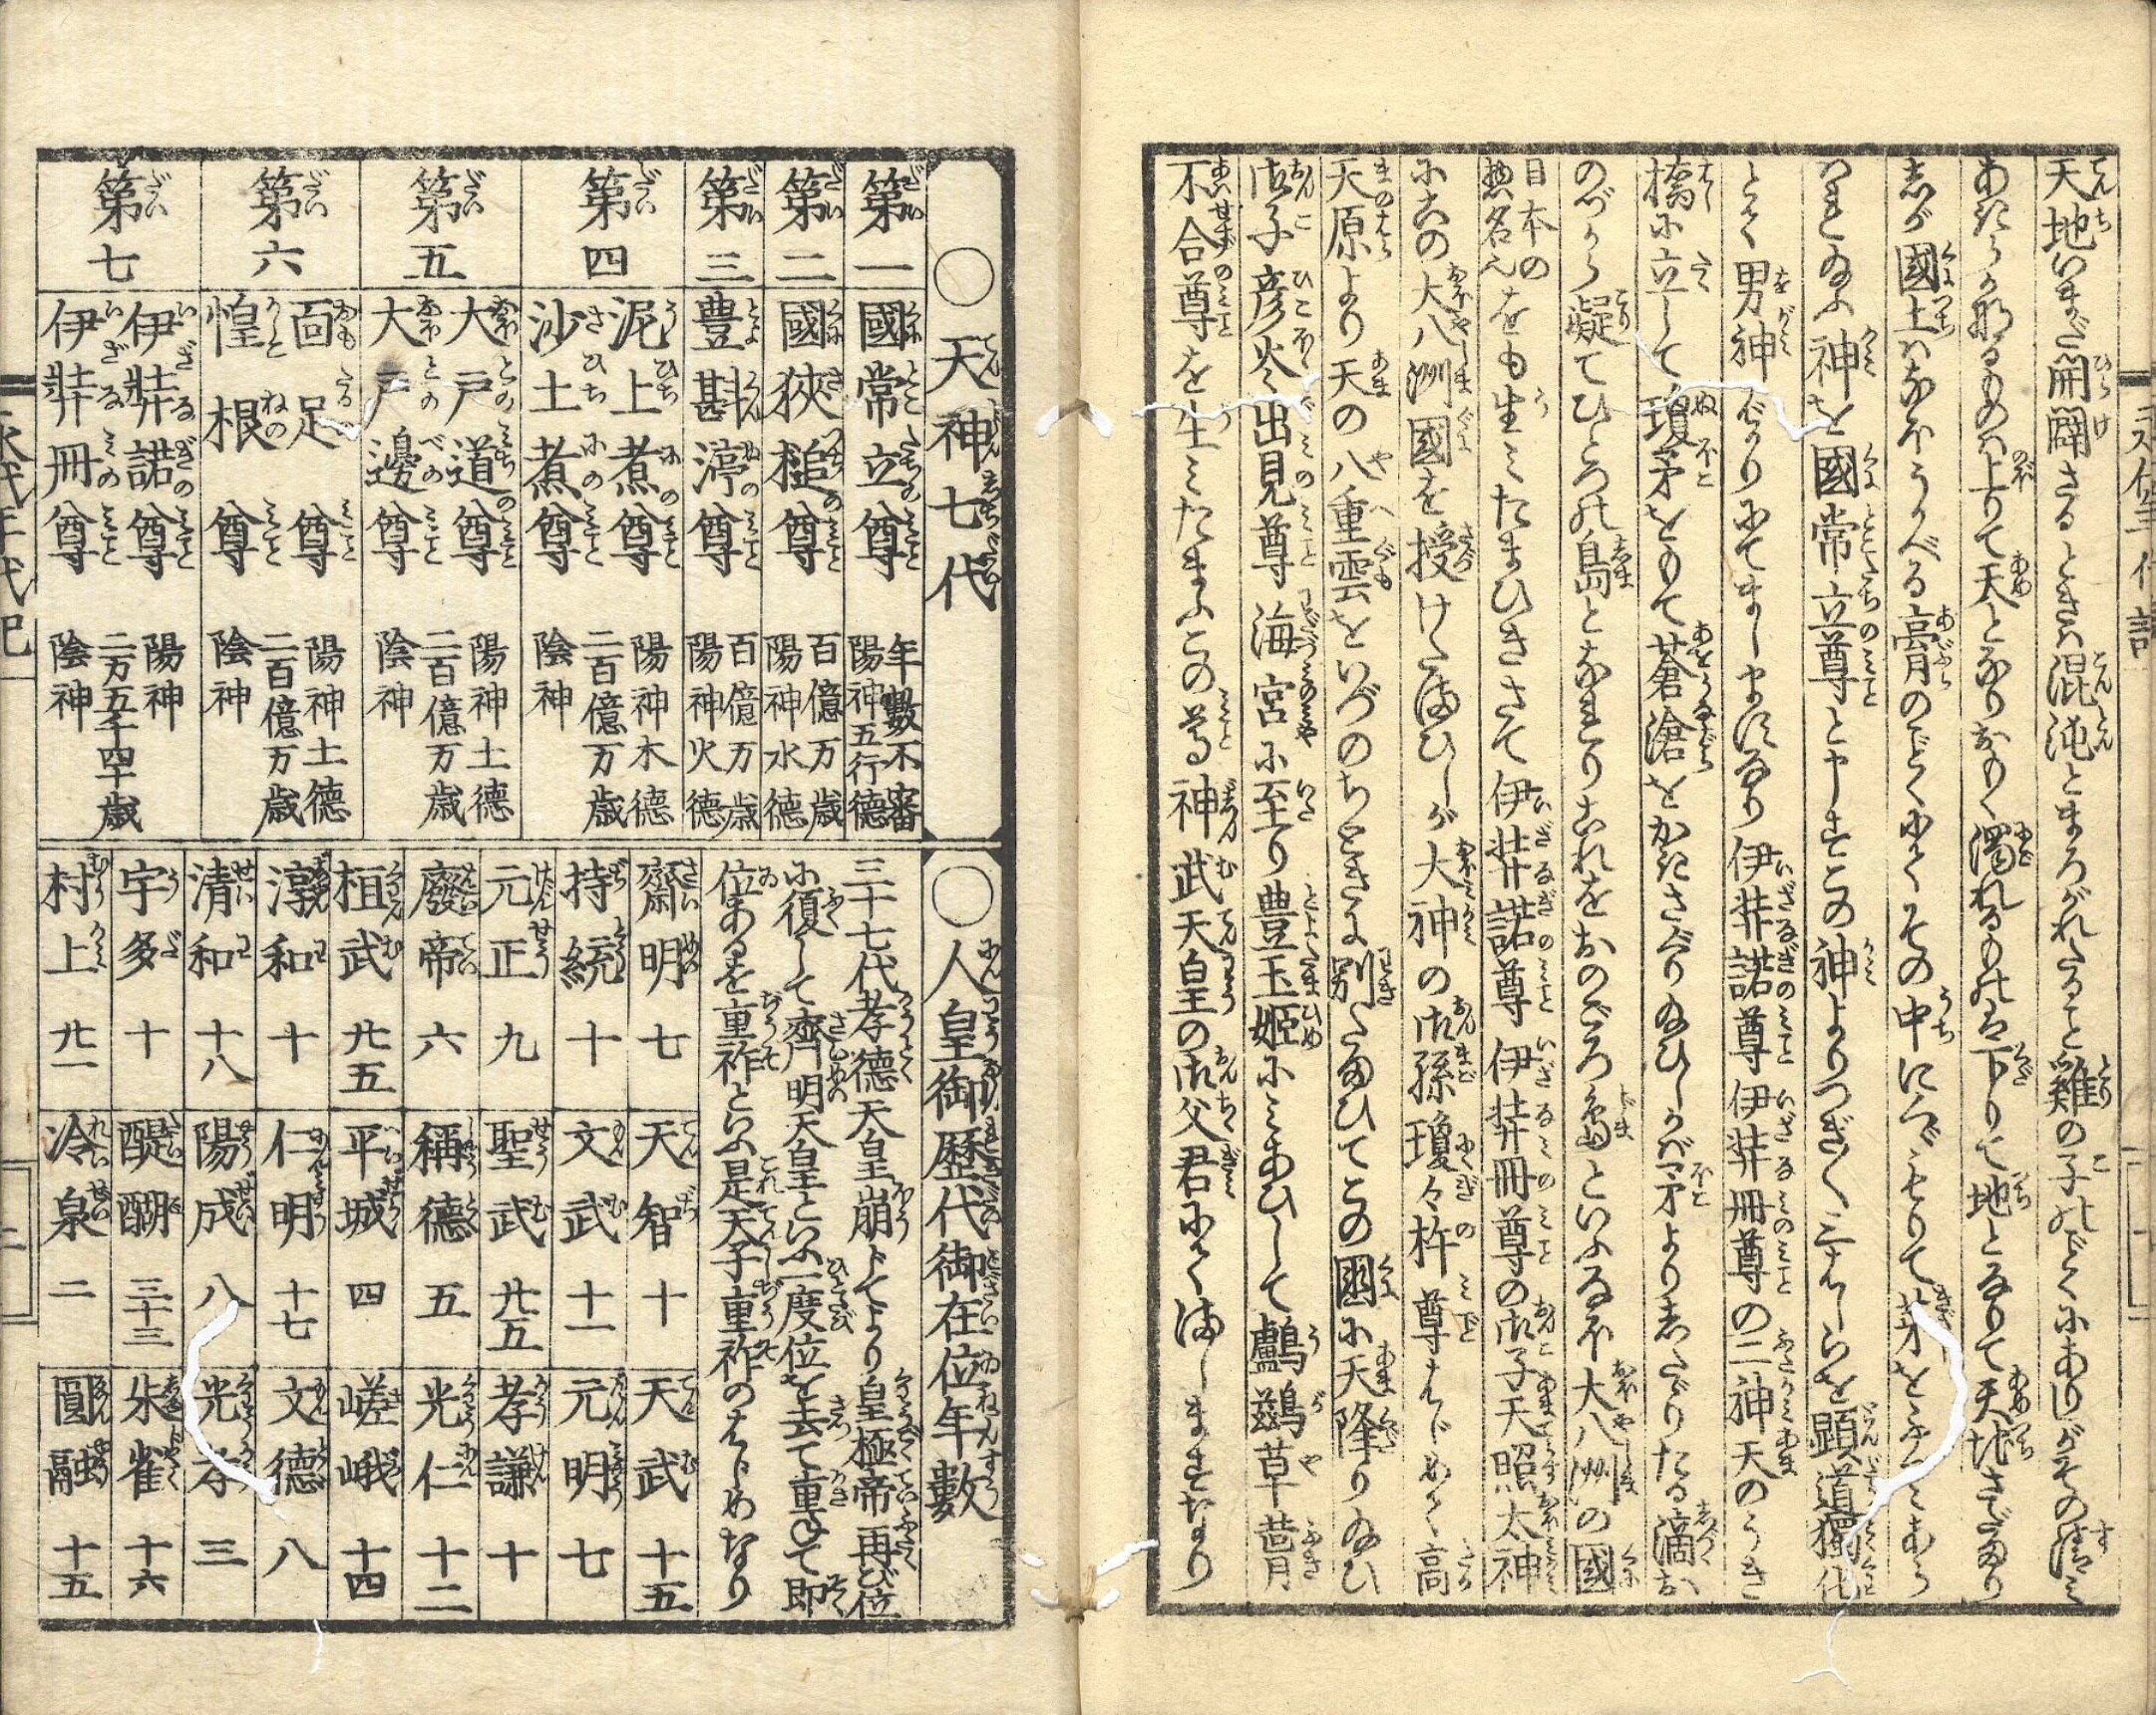 天地いまだ開闢さるときハ混沌とまろがれたること雞の子のごとくにありがその清ミ
あきらか那るものハ上りて天となりおもく濁れるものは下りて地となりて天地さだまり
しが國土ハなほうかべる膏のごとくにてその中に
神を國常立尊と申しきこの神よりつぎ〱三はしらを顕道獨化
とて男神ばかりにてましませしなり伊弉諾尊伊弉冊尊の二神天のうき
橋に立して瓊矛をもて蒼滄をかきさぐり給ひしかバ矛よりしたゞりたる滴お
のづから凝てひとつの島となれりこれをおのごろ島といふなほ大八洲の國
日本の惣名也をも生ミたまひきさて伊弉諾尊伊弉冊尊の御子天照太神
にこの大八洲國を授けたまひしが大神の御孫瓊々杵尊はじめて高
天原より天の八重雲をいづのちわきに別たまひてこの國に天降り給ひ
御子彦火々出見尊海宮に至り豊玉姫にミあひして鸕鷀草葺
不合尊を生ミたまふこの尊神武天皇の御父君にてましませおなり
〇天神七代
第一 國常立尊 年數不審 陽神五行德
第二 國狹槌尊 百億万歳 陽神水德
第三 豊斟渟尊 百億万歳 陽神火德
第四 泥土煮尊 沙土煮尊 陽神木德 二百億万歳 陰神
第五 大戸道尊 大戸邊尊 陽神土德 二百億万歳 陰神
第六 面足尊 惶根尊 陽神土德 二百億万歳 陰神
第七 伊弉諾尊 伊弉冊尊 陽神 二万五千四十歳 陰神
〇人皇御歴代御在位年數
三十七代孝德天皇崩じてより皇極帝再び位
に復して齊明天皇といふ一度位を去て重て即
位あるを重祚といふ是天子重祚のはじめなり
齋明 七 天智 十 天武 十五
持統 十 文武 十一 元明 七
元正 九 聖武 廿五 孝謙 十
廢帝 六 稱德 五 光仁 十二
桓武 廿五 平城 四 嵯峨 十四
淳和 十 仁明 十七 文德 八
清和 十八 陽成 八 光孝 三
宇多 十 醍醐 三十三 朱雀 十六
村上 廿一 冷泉 二 圓融 十五